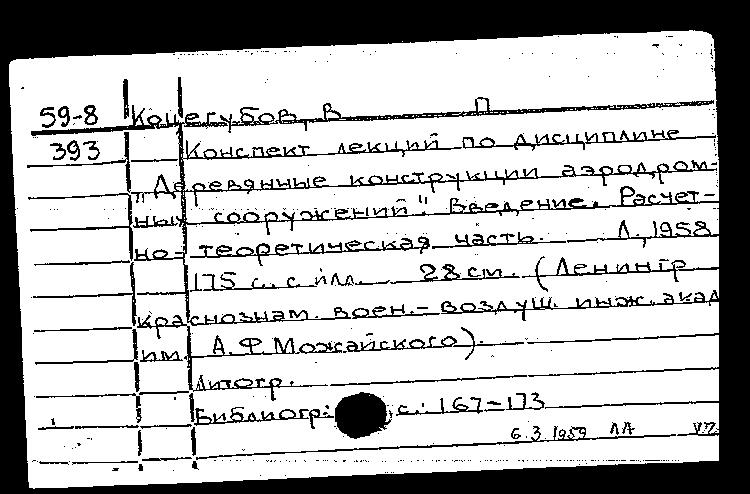 59-8 Коцегубов, В П
393 Конспект лекций по дисциплине
„Деревянные конструкции аэродром-
ных сооружений". Введение. Расчет-
но-теоретическая часть. Л., 1958
175 с. с илл. 28 см. (Ленингр
краснознам. воен.-воздуш. инж. акад
им. А.Ф. Можайского).
Литогр.
Библиогр: с.: 167-173
6.3.1959 ЛА